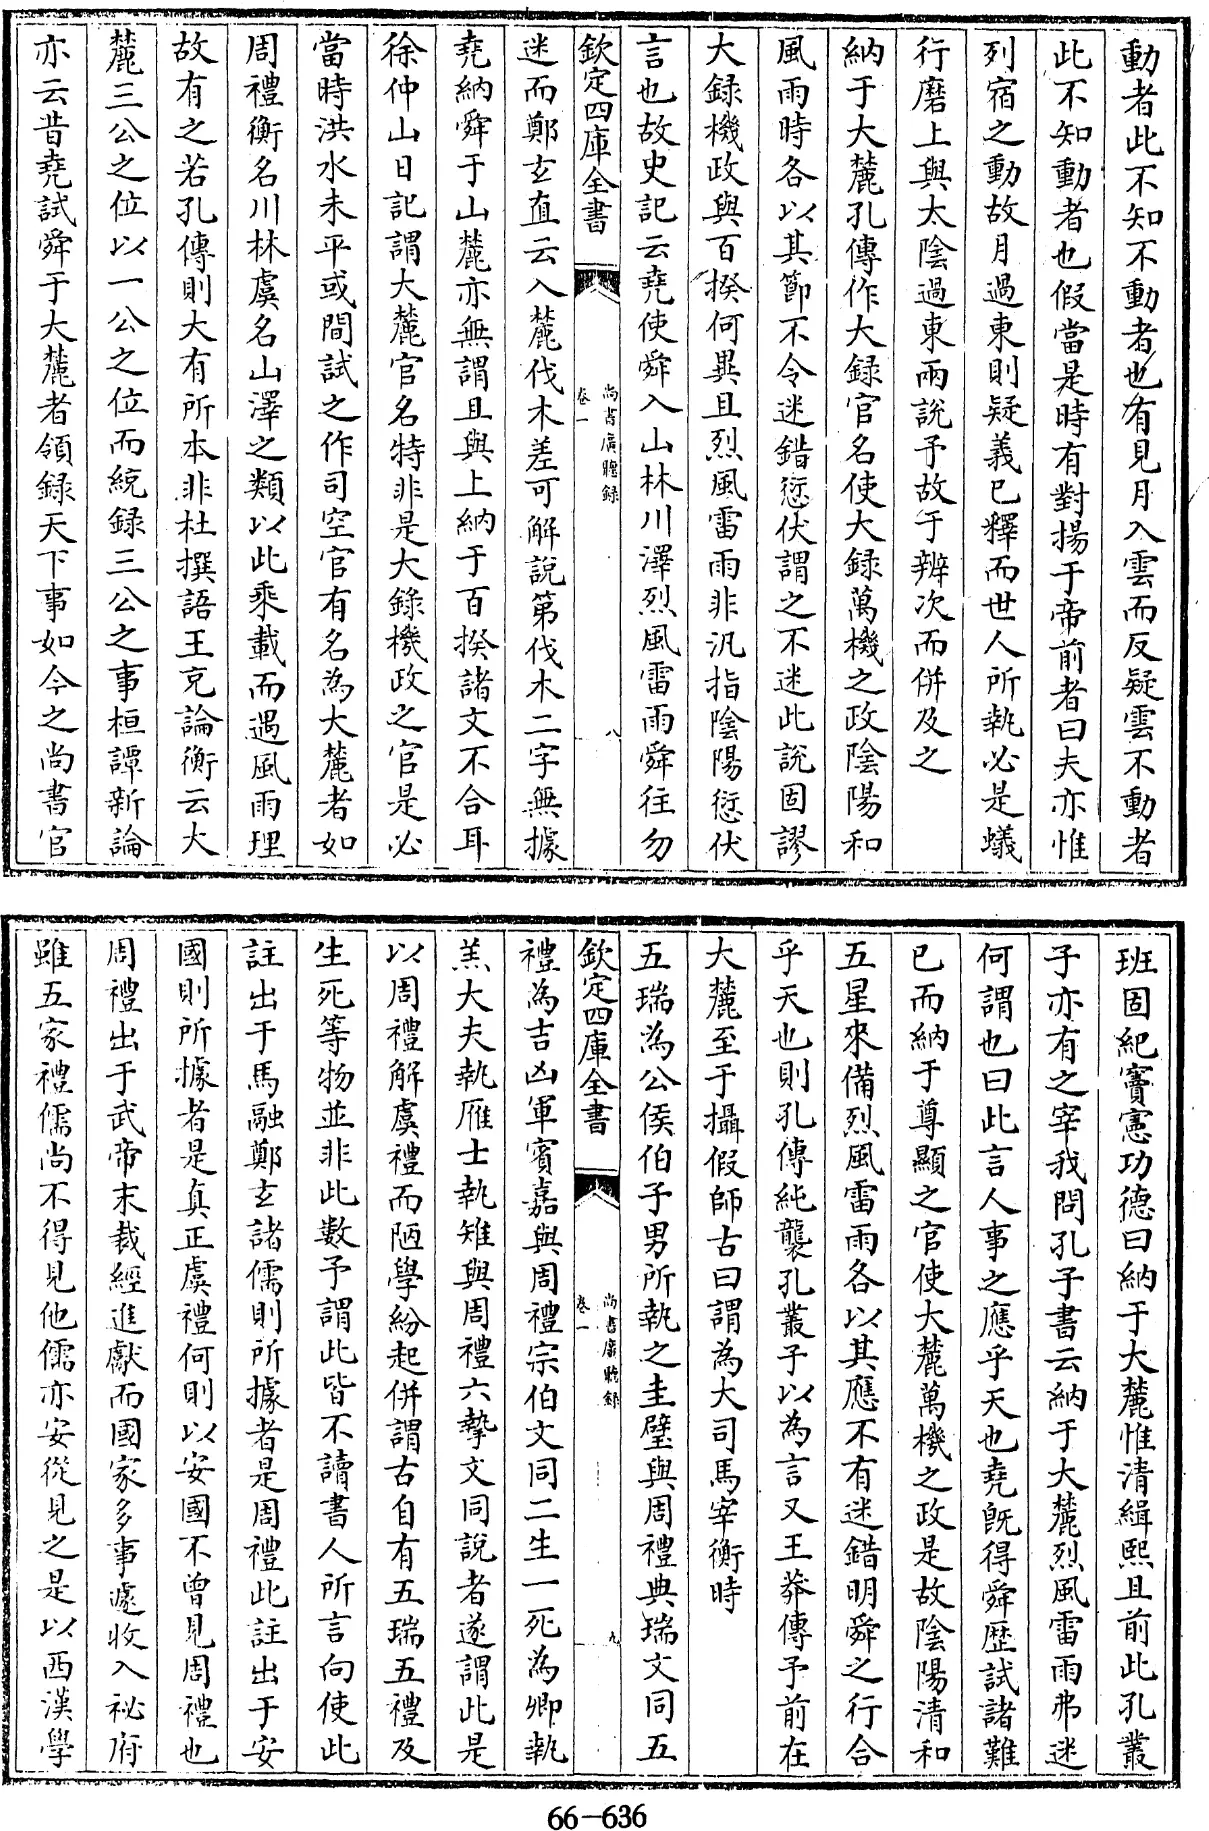 動者此不知不動者也有見月入雲而反疑雲不動者
此不知動者也假當是時有對揚于帝前者曰夫亦惟
列宿之動故月過東則疑義已釋而世人所執必是蟻
行磨上與太陰過東兩說予故于辨次而併及之
納于大麓孔傳作大録官名使大録萬機之政陰陽和
風雨時各以其節不令迷錯愆伏謂之不迷此說固謬
大録機政與百揆何異且烈風雷雨非汎指陰陽愆伏
言也故史記云堯使舜入山林川澤烈風雷雨舜往勿
欽定四庫全書
尚書廣聽録
卷一
八
迷而鄭玄直云入麓伐木差可解說第伐木二字無據
堯納舜于山麓亦無謂且與上納于百揆諸文不合耳
徐仲山日記謂大麓官名特非是大錄機政之官是必
當時洪水未平或間試之作司空官有名為大麓者如
周禮衡名川林虞名山澤之類以此乘載而遇風雨理
故有之若孔傳則大有所本非杜撰語王充論衡云大
麓三公之位以一公之位而統録三公之事桓譚新論
亦云昔堯試舜于大麓者領録天下事如今之尚書官
班固紀竇憲功德曰納于大麓惟清緝熙且前此孔叢
子亦有之宰我問孔子書云納于大麓烈風雷雨弗迷
何謂也曰此言人事之應乎天也堯旣得舜歷試諸難
已而納于尊顯之官使大麓萬機之政是故陰陽清和
五星來備烈風雷雨各以其應不有迷錯明舜之行合
乎天也則孔傳純襲孔叢子以為言又王莽傳予前在
大麓至于攝假師古曰謂為大司馬宰衡時
五瑞為公侯伯子男所執之圭璧與周禮典瑞文同五
欽定四庫全書
尚書廣聽録
卷一
九
禮為吉凶軍賓嘉與周禮宗伯文同二生一死為卿執
羔大夫執雁士執雉與周禮六摯文同說者遂謂此是
以周禮解虞禮而陋學紛起併謂古自有五瑞五禮及
生死等物並非此數予謂此皆不讀書人所言向使此
註出于馬融鄭玄諸儒則所據者是周禮此註出于安
國則所據者是真正虞禮何則以安國不曾見周禮也
周禮出于武帝末裁經進獻而國家多事遽收入祕府
雖五家禮儒尚不得見他儒亦安從見之是以西漢學
66-636